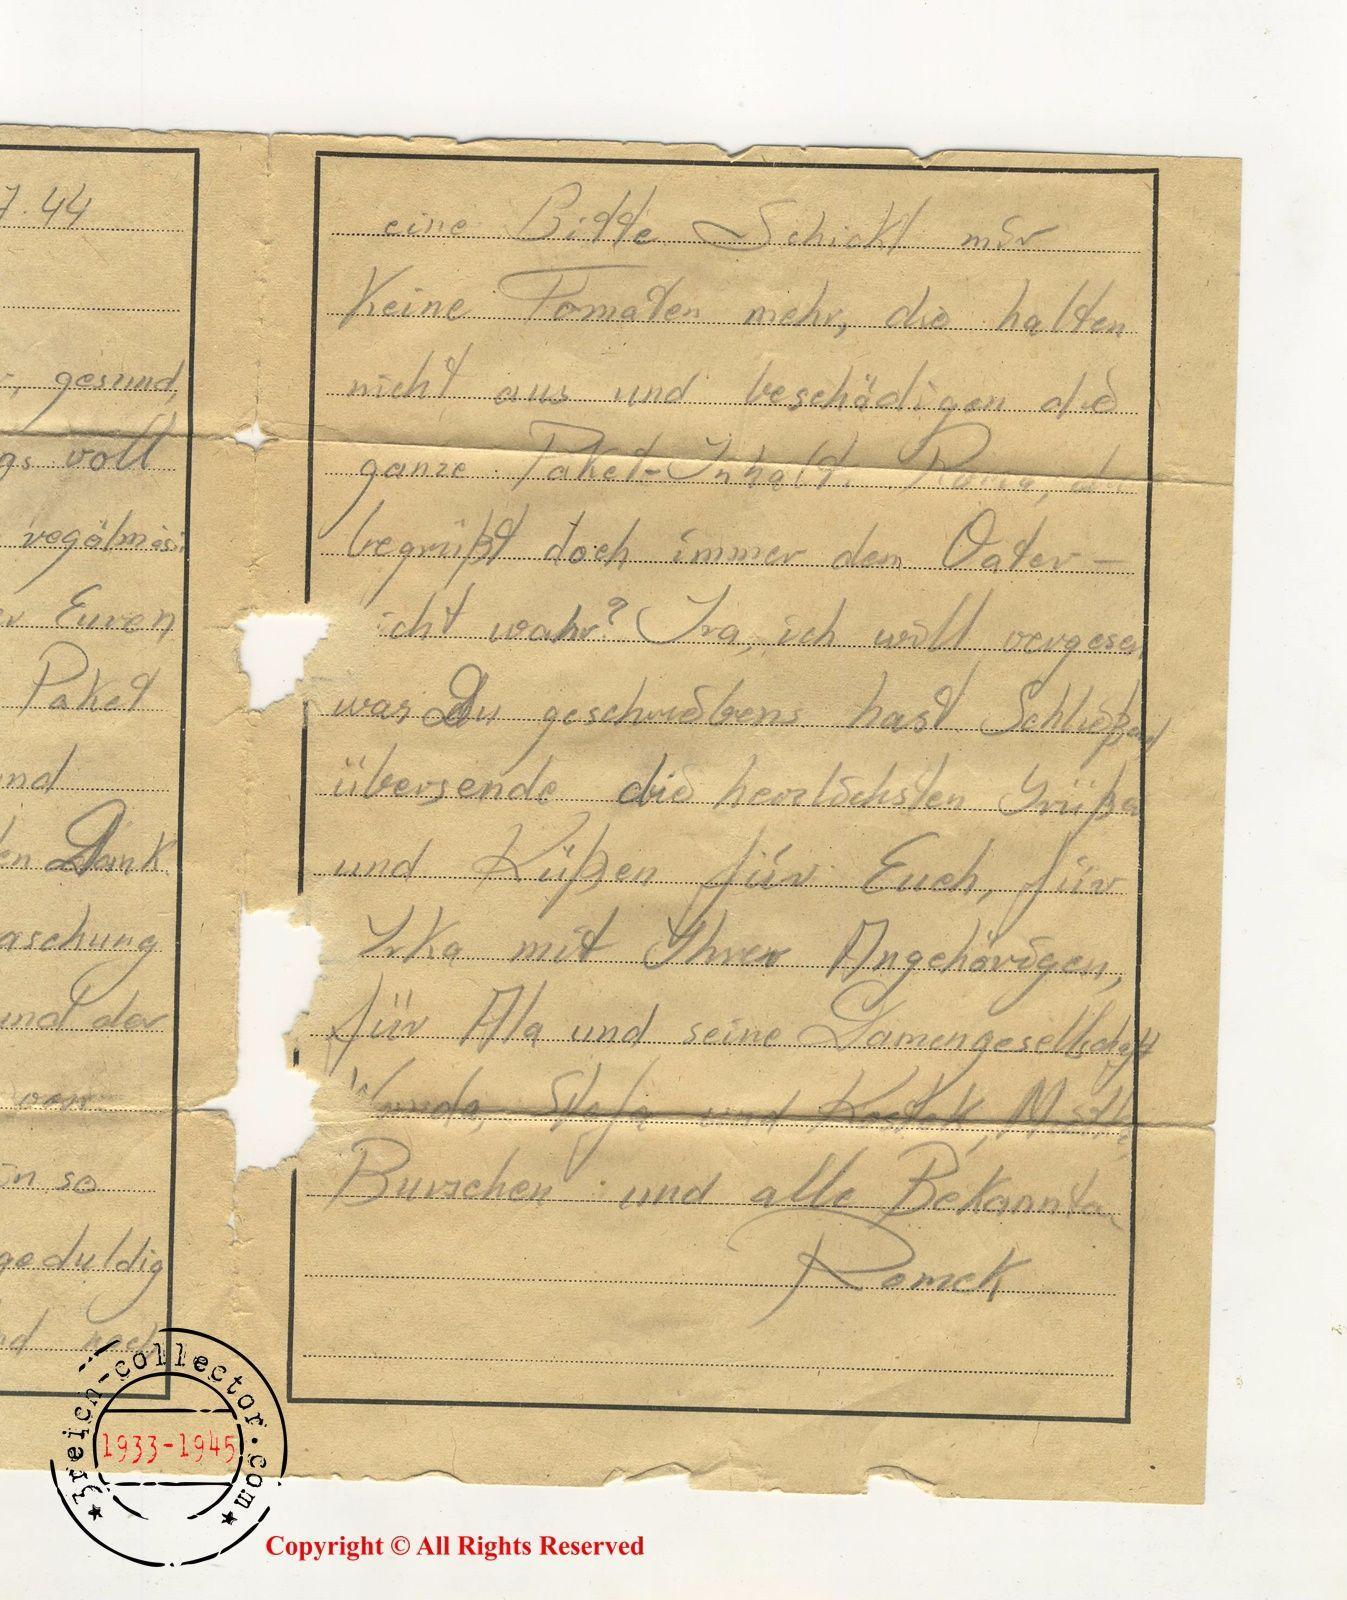 7.44
gesund,
gs voll
regälmäsi
Euren
Paket
nd
en Dank
aschung
und der
ver
so
geduldig
nd noch
eine Bitte Schickt mir
Keine Tomaten mehr, die halten
nicht aus und beschädigen die
ganze Paket-Inhalt.
begrüßt doch immer den Vater —
icht wahr? Ira, ich will vergesen
was Du geschriebens hast. Schließend
übersende die herzlichsten Grüßen
und Küßen für Euch, für
Irka mit Ihren Angehörigen,
für Ala und seine Damengesellschaft
Wanda, Stefa und
Burschen und alle Bekannten
Romek
3reich-collector.com
1933-1945
Copyright © All Rights Reserved